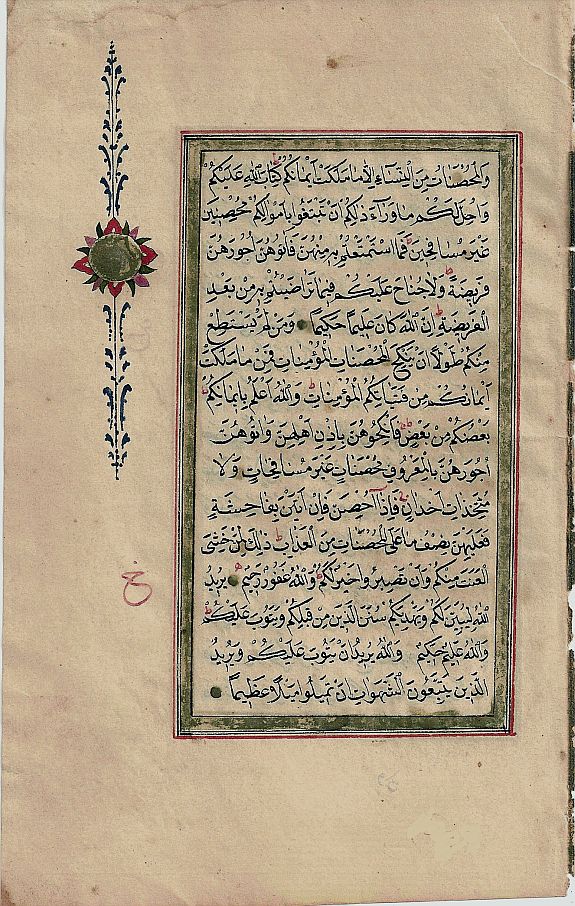 وَالْمُحْصَنَاتُ مِنَ النِّسَاءِ اِلَّا مَا مَلَكَتْ اَيْمَانُكُمْ كِتَابَ اللّٰهِ عَلَيْكُمْ
وَاُحِلَّ لَكُمْ مَا وَرَآءَ ذٰلِكُمْ اَنْ تَبْتَغُوا بِاَمْوَالِكُمْ مُحْصِنِينَ
غَيْرَ مُسَافِحِينَ فَمَا اسْتَمْتَعْتُمْ بِهِ مِنْهُنَّ فَاٰتُوهُنَّ اُجُورَهُنَّ
فَرِيضَةً وَلَا جُنَاحَ عَلَيْكُمْ فِيمَا تَرَاضَيْتُمْ بِهِ مِنْ بَعْدِ
الْفَرِيضَةِ اِنَّ اللّٰهَ كَانَ عَلِيمًا حَكِيمًا وَمَنْ لَمْ يَسْتَطِعْ
مِنْكُمْ طَوْلًا اَنْ يَنْكِحَ الْمُحْصَنَاتِ الْمُؤْمِنَاتِ فَمِنْ مَا مَلَكَتْ
اَيْمَانُكُمْ مِنْ فَتَيَاتِكُمُ الْمُؤْمِنَاتِ وَاللّٰهُ اَعْلَمُ بِاِيمَانِكُمْ
بَعْضُكُمْ مِنْ بَعْضٍ فَانْكِحُوهُنَّ بِاِذْنِ اَهْلِهِنَّ وَاٰتُوهُنَّ
اُجُورَهُنَّ بِالْمَعْرُوفِ مُحْصَنَاتٍ غَيْرَ مُسَافِحَاتٍ وَلَا
مُتَّخِذَاتِ اَخْدَانٍ فَاِذَا اُحْصِنَّ فَاِنْ اَتَيْنَ بِفَاحِشَةٍ
فَعَلَيْهِنَّ نِصْفُ مَا عَلَى الْمُحْصَنَاتِ مِنَ الْعَذَابِ ذٰلِكَ لِمَنْ خَشِيَ
الْعَنَتَ مِنْكُمْ وَاَنْ تَصْبِرُوا خَيْرٌ لَكُمْ وَاللّٰهُ غَفُورٌ رَحِيمٌ يُرِيدُ
اللّٰهُ لِيُبَيِّنَ لَكُمْ وَيَهْدِيَكُمْ سُنَنَ الَّذِينَ مِنْ قَبْلِكُمْ وَيَتُوبَ عَلَيْكُمْ
وَاللّٰهُ عَلِيمٌ حَكِيمٌ وَاللّٰهُ يُرِيدُ اَنْ يَتُوبَ عَلَيْكُمْ وَيُرِيدُ
الَّذِينَ يَتَّبِعُونَ الشَّهَوَاتِ اَنْ تَمِيلُوا مَيْلًا عَظِيمًا